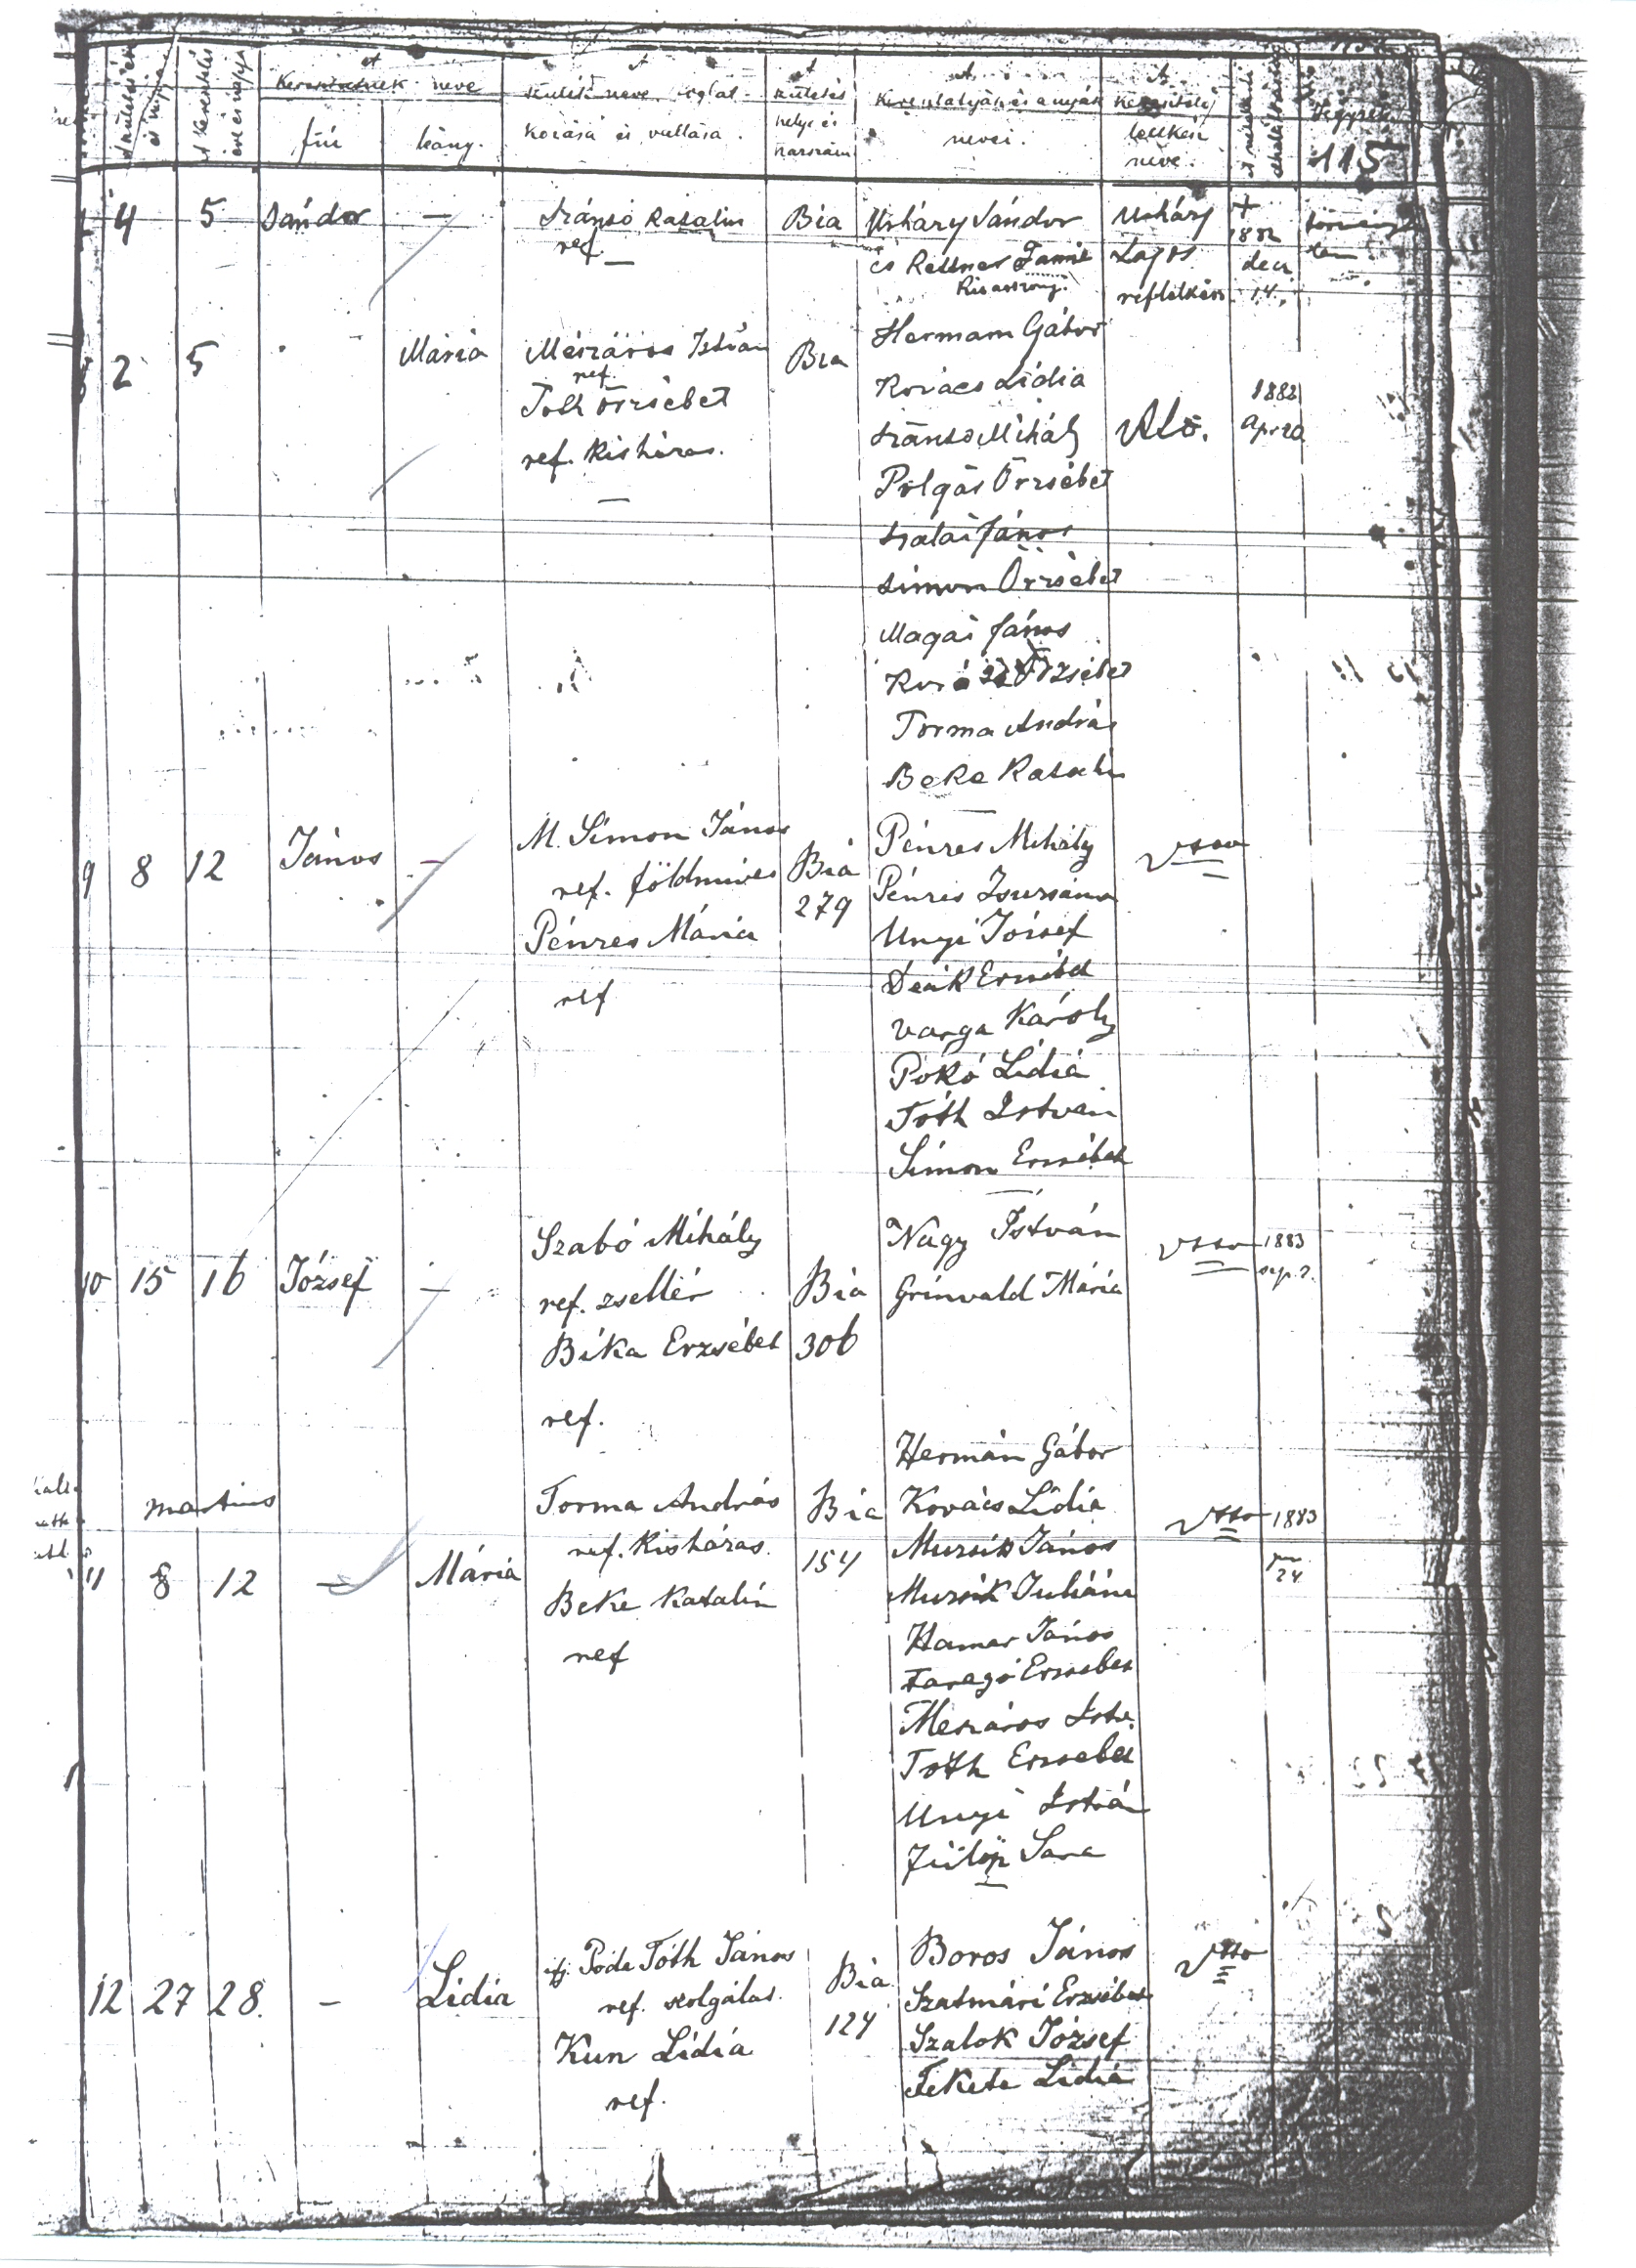 A születés év és napja
A keresztelés éve és napja
A
Kereszteltnek neve
fiú
leány.
A
szülők neve, foglal-
kozása és vallása.
A
születés
helye és
házszám
A
Keresztatyák és anyák
nevei.
A
Keresztelő
lelkész
neve.
Jegyzék
115
4 5 Sándor —
Szánsó Katalin
ref.
Bia
Urháry Sándor
és Kettner Fanni
Kisasszony.
Urháry
Lajos
ref lelkész
+
1882
dec
14.
törvényte
len
2 5 Mária
Mészáros István
ref.
Toth Örzsébet
ref. Kisházas.
Bia
Hermann Gábor
Kovács Lidia
Szánsó Mihály
Polgár Örzsébet
Szalai János
Simon Örzsébet
Magai János
Kovács Erzsébet
Torma András
Beke Katalin
1882
apr 20
9 8 12 János —
M. Simon János
ref. földmives
Pénzes Mária
ref
Bia
279
Pénzes Mihály
Pénzes Zsuzsána
Unyi József
Deák Erzsébet
Varga Károly
Pokó Lidia
Tóth István
Simon Erzsébet
10 15 16 József —
Szabó Mihály
ref. zsellér
Bika Erzsébet
ref.
Bia
306
Nagy István
Grinvald Mária
1883
sep 2.
martius
11 8 12 — Mária
Torma András
ref. Kisházas.
Beke Katalin
ref
Bia
154
Hermán Gábor
Kovács Lidia
Mursik János
Mursik Juliána
Hamar János
Faragó Erzsébet
Mészáros Istv.
Tóth Erzsébet
Unyi István
Fülöp Sára
1883
24
12 27 28. — Lidia
ifj. Póda Tóth János
ref. szolgálat.
Kun Lidia
ref.
Bia
124
Boros János
Szatmári Erzsébet
Szalok József
Fekete Lidia